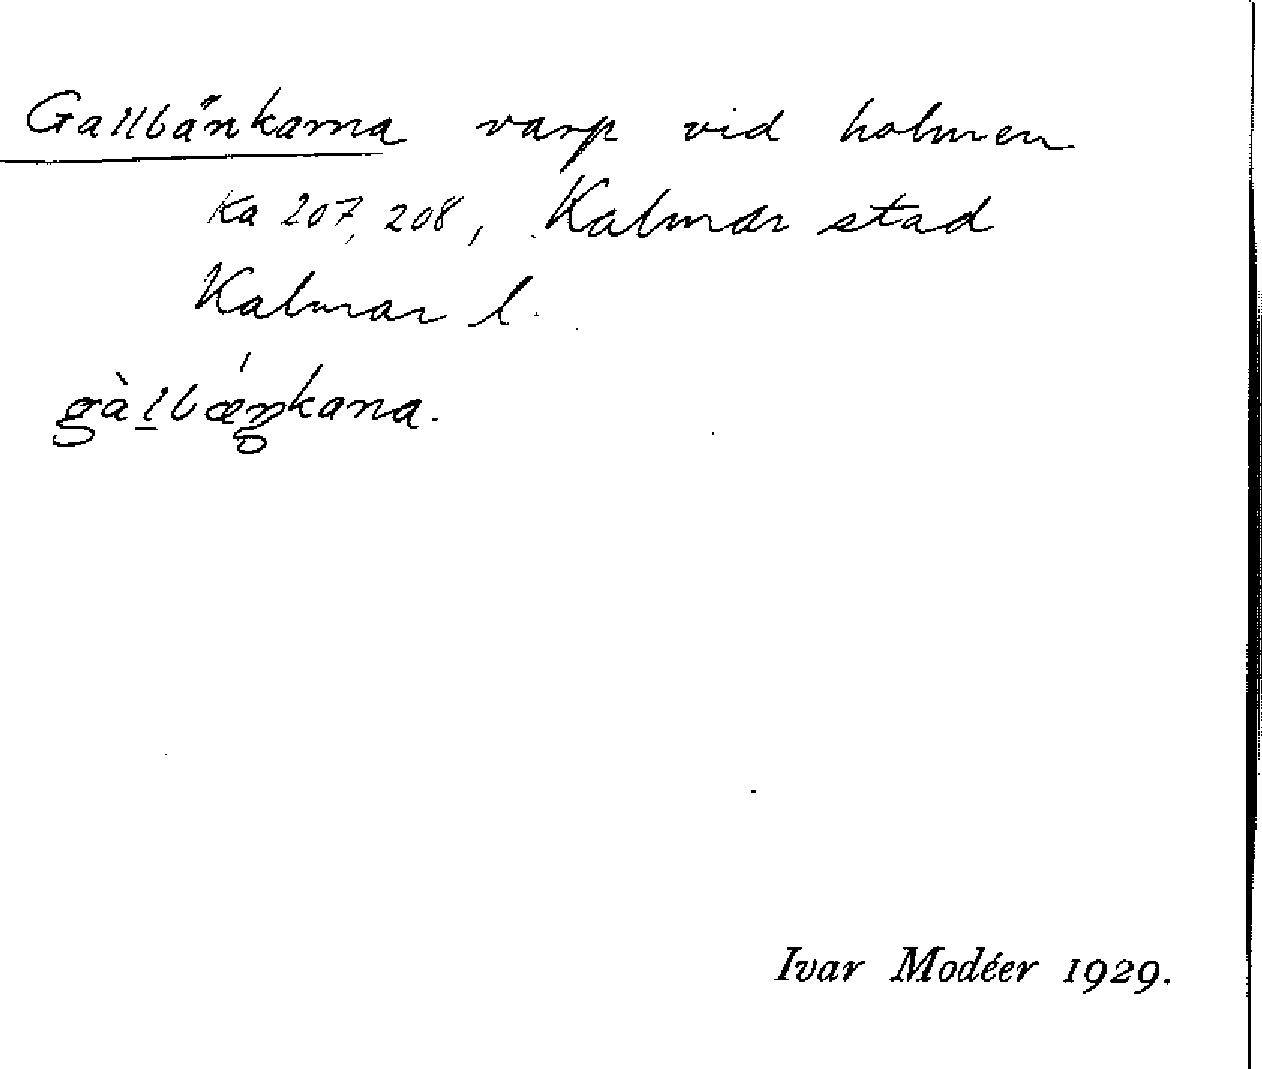 Gallbänkarna varp vid holmen
Ka 207, 208, Kalmar stad
Kalmar l.
gàlbǽŋkana.
Ivar Modéer 1929.